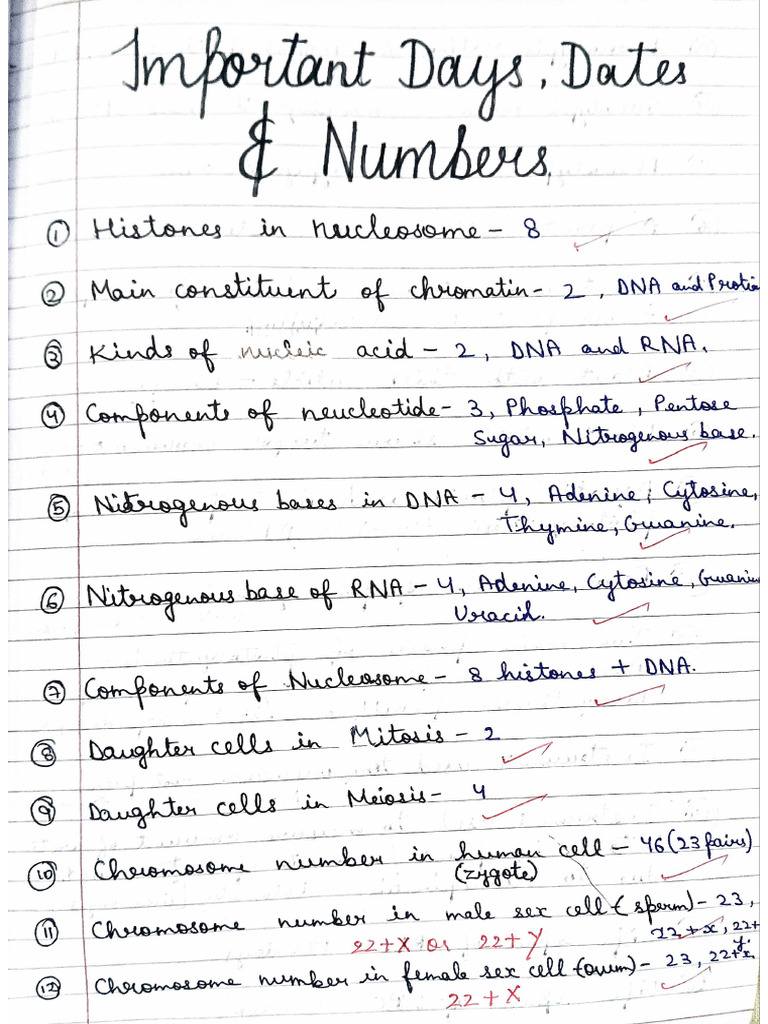 Important Days, Dates
& Numbers.
① Histones in nucleosome - 8
② Main constituent of chromatin - 2, DNA and Protie
③ Kinds of nucleic acid - 2, DNA and RNA.
④ Components of neucleotide - 3, Phosphate, Pentose
Sugar, Nitrogenous base.
⑤ Nitrogenous bases in DNA - 4, Adenine, Cytosine,
Thymine, Gwanine.
⑥ Nitrogenous base of RNA - 4, Adenine, Cytosine, Gwanin
Uracid.
⑦ Components of Nucleosome - 8 histones + DNA.
⑧ Daughter cells in Mitosis - 2
⑨ Daughter cells in Meiosis - 4
⑩ Chromosome number in human cell - 46 (23 pairs)
(zygote)
⑪ Chromosome number in male sex cell (sperm) - 23,
22+X or 22+Y
22+x, 22+
y.
⑫ Chromosome number in female sex cell (ovum) - 23, 22+x.
22+X